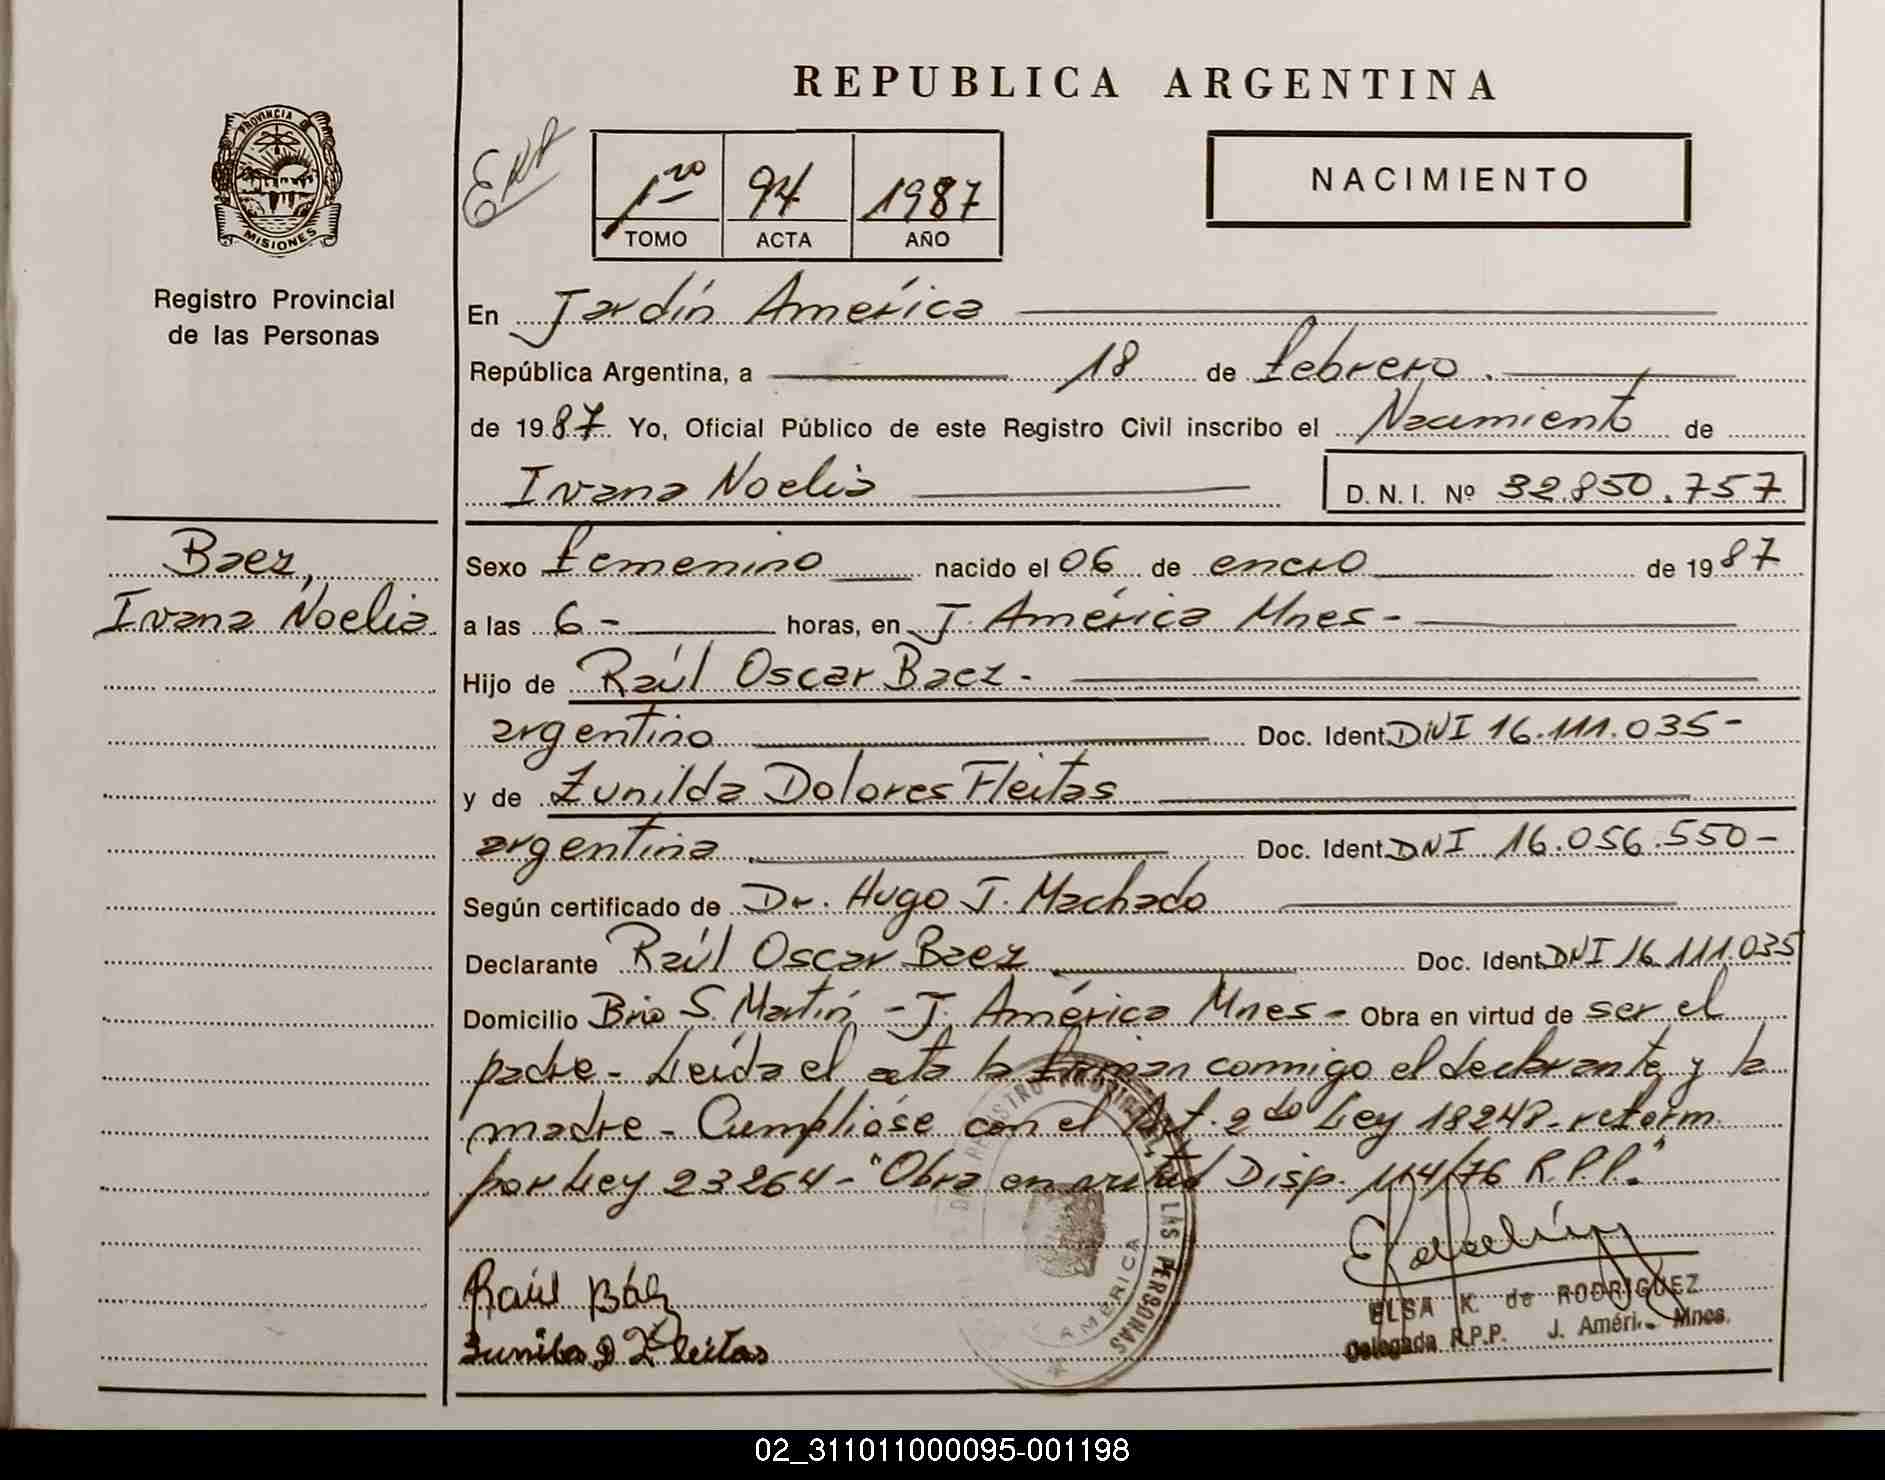 REPUBLICA ARGENTINA
PROVINCIA DE
MISIONES
Registro Provincial
de las Personas
1ro 94 1987
TOMO ACTA AÑO
NACIMIENTO
En Jardín América
República Argentina, a 18 de febrero.
de 1987. Yo, Oficial Público de este Registro Civil inscribo el Nacimiento de
Ivana Noelia D.N.I. Nº 32.850.757
Baez,
Ivana Noelia
Sexo femenino nacido el 06 de enero de 1987
a las 6- horas, en J. América Mnes-
Hijo de Raúl Oscar Baez-
argentino Doc. Ident. DNI 16.111.035-
y de Zunilda Dolores Fleitas
argentina Doc. Ident. DNI 16.056.550-
Según certificado de Dr. Hugo J. Machado
Declarante Raúl Oscar Baez Doc. Ident. DNI 16.111.035
Domicilio Brio S. Martín - J. América Mnes- Obra en virtud de ser el
padre - Leída el acta la firman conmigo el declarante y la
madre - Cumplióse con el Art. 2do Ley 18248- reform.
por Ley 23264 - "Obra en virtud Disp. 114/76 R.P.P."
REGISTRO PROVINCIAL DE LAS PERSONAS
AMERICA
Raúl Báez
Zunilda D Fleitas
ELSA K. de RODRIGUEZ
Delegada R.P.P. J. Améri. Mnes.
02_311011000095-001198